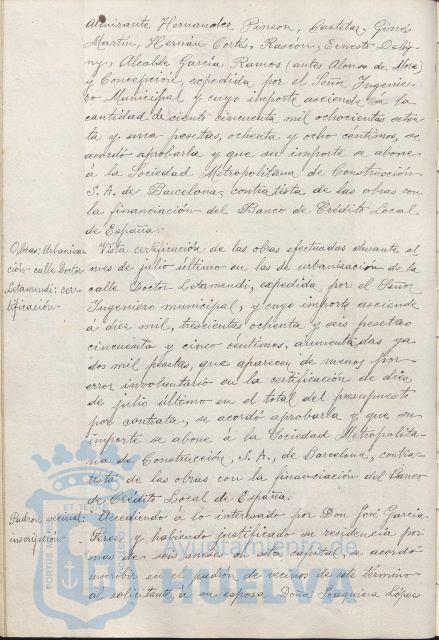 Almirante Hernandez Pinson, Castelar, Ginés
Martín, Hernán Cortés, Rascon, Ernesto Delig-
ny, Alcalde García Ramos (antes Alonso de Mora)
y Concepción, expedida por el Señor Ingenie-
ro Municipal y cuyo importe asciende a la
cantidad de ciento cincuenta mil ochocientas
ta y una pesetas, ochenta y ocho céntimos, se
acordó aprobarla y que su importe se abone
a la Sociedad Metropolitana de Construcción
S.A. de Barcelona, contratista de las obras con
la financiación del Banco de Crédito Local
de España.
Obras: Urbanizar
ción calle Doctor
Letamendi: cer-
tificación.
Vista certificación de las obras efectuadas durante el
mes de julio último en las de urbanización de la
calle Doctor Letamendi, expedida por el Señor
Ingeniero municipal, y cuyo importe asciende
a diez mil, trescientas ochenta y seis pesetas
cincuenta y cinco céntimos, aumentadas ya
dos mil pesetas, que aparecen de menos por
error involuntario en la certificación de diez
de julio último en el total del presupuesto
por contrata, se acordó aprobarla y que su
importe se abone á la Sociedad Metropolita-
na de Construcción, S.A., de Barcelona, contra-
tista de las obras con la financiación del Banco
de Crédito Local de España.
Padron vecinal:
inscripción.
Accediendo á lo interesado por Don José García
Perez y habiendo justificado su residencia por
mas de seis meses en esta capital, se acordó
inscribir en el padrón de vecinos de este término
al solicitante, á su esposa Doña Joaquina López
Ayuntamiento de
HUELVA